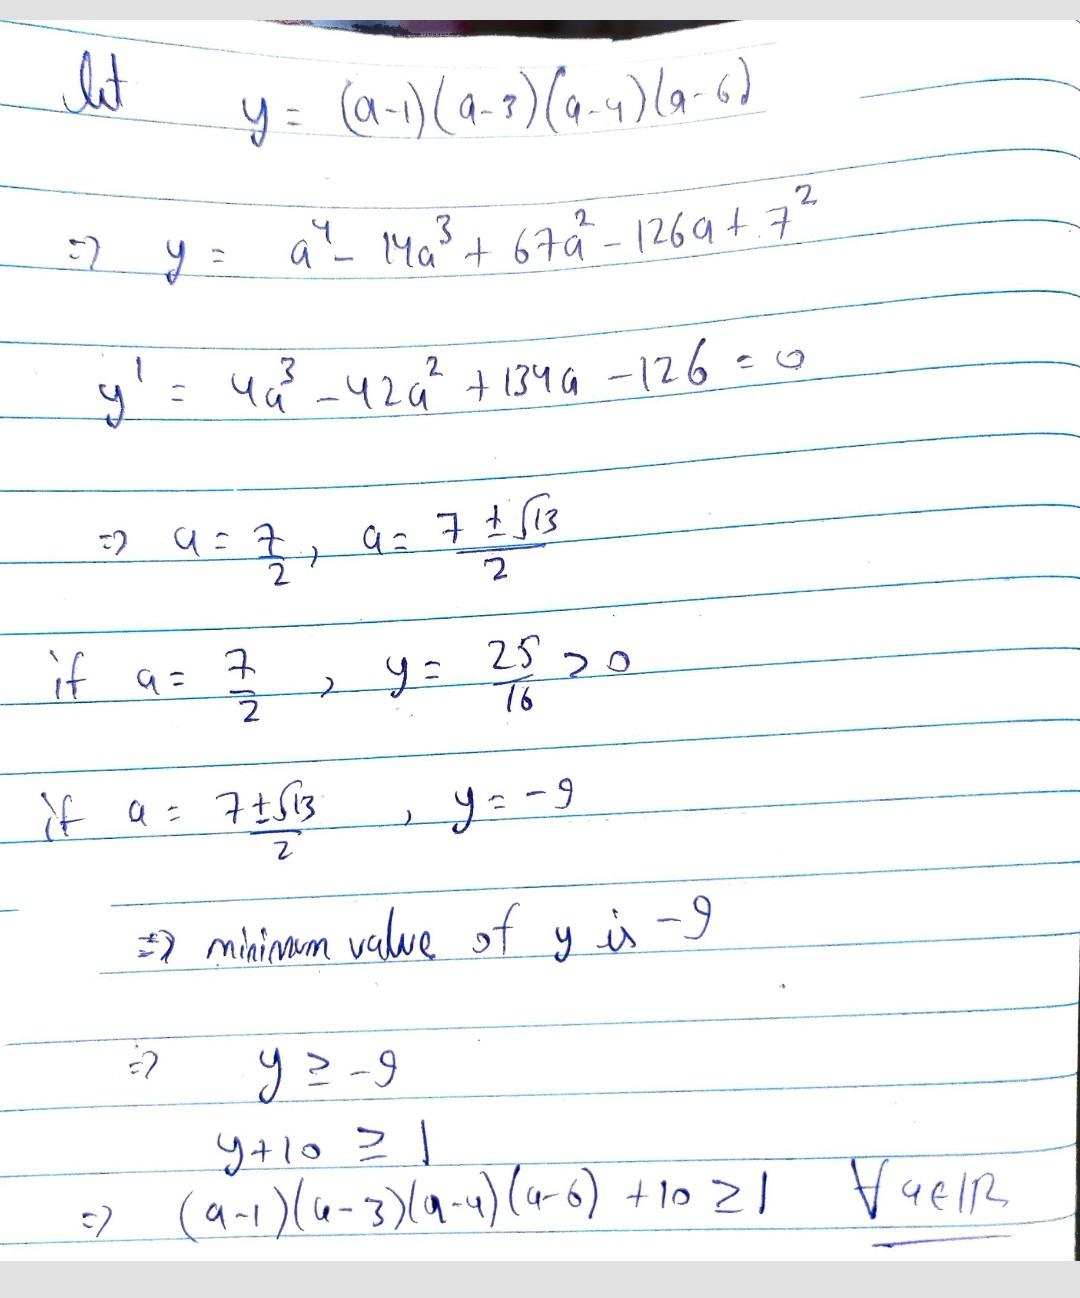 let y = (a-1)(a-3)(a-4)(a-6)
=> y = a⁴ - 14a³ + 67a² - 126a + 7²
y' = 4a³ - 42a² + 134a - 126 = 0
=> a = 7/2, a = (7 ± √13)/2
if a = 7/2, y = 25/16 > 0
if a = (7 ± √13)/2, y = -9
=> minimum value of y is -9
=> y ≥ -9
y + 10 ≥ 1
=> (a-1)(a-3)(a-4)(a-6) + 10 ≥ 1 ∀ a ∈ ℝ